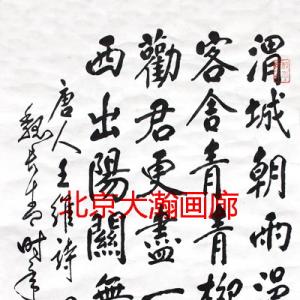 渭城朝雨浥
客舍青青柳
勸君更盡一
西出陽關無
唐人王維詩
魏長青时年
北京大瀚画廊